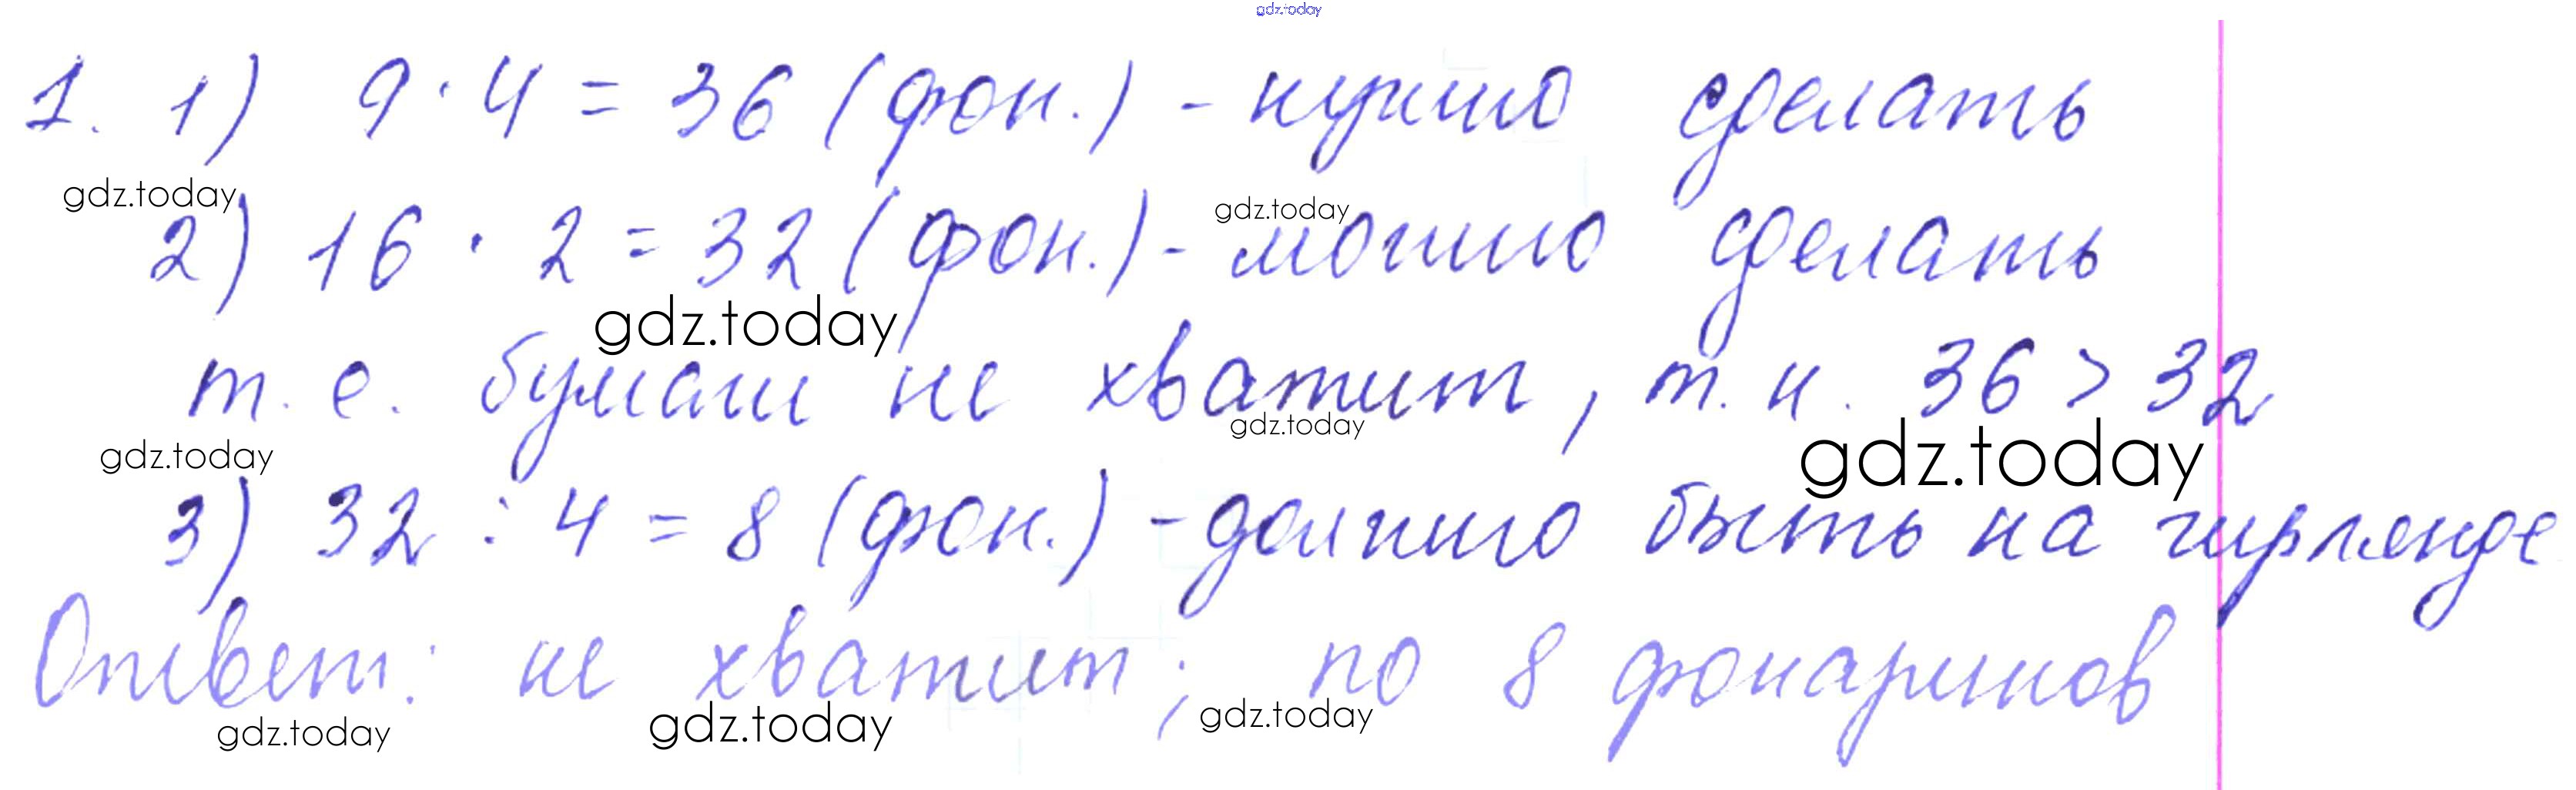 gdz.today
1. 1) 9 · 4 = 36 (фон.) - нужно сделать
gdz.today gdz.today
2) 16 · 2 = 32 (фон.) - можно сделать
gdz.today
т. е. бумаги не хватит, т. к. 36 > 32
gdz.today gdz.today gdz.today
3) 32 : 4 = 8 (фон.) - должно быть на гирлянде
Ответ: не хватит; по 8 фонариков
gdz.today gdz.today gdz.today